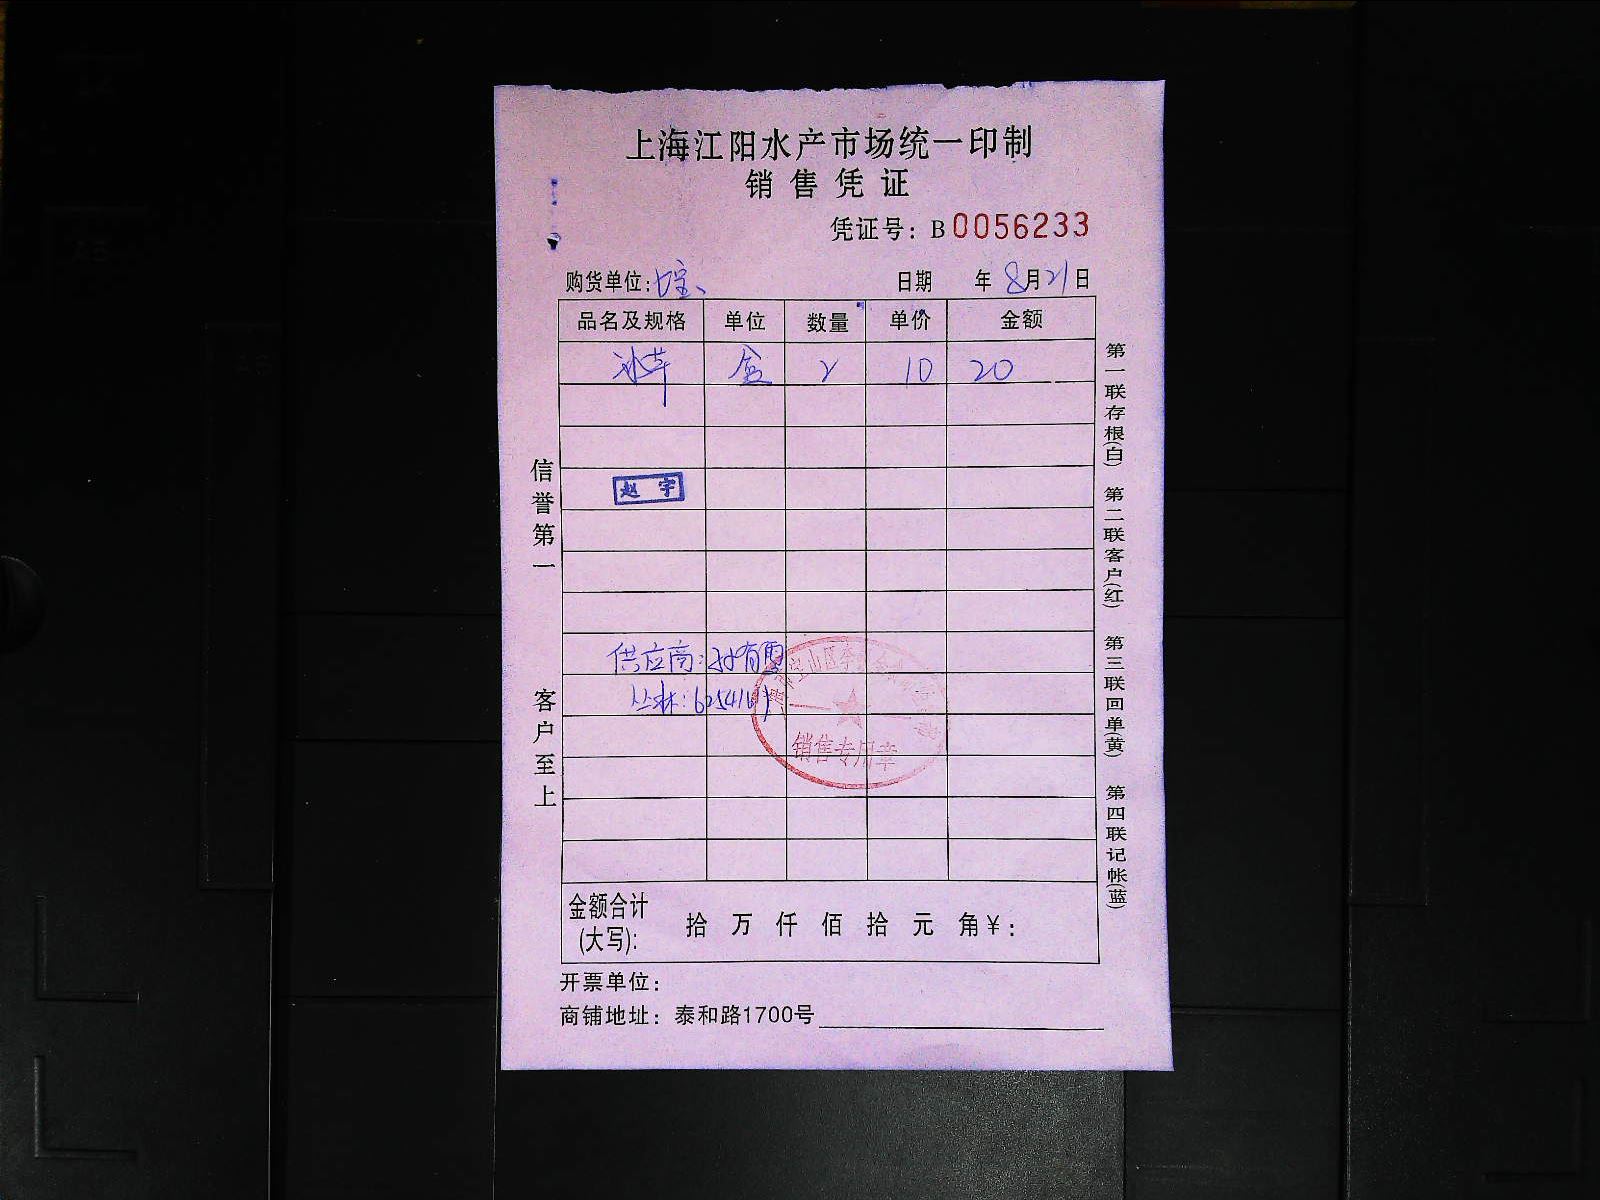 上海江阳水产市场统一印制
销售凭证
凭证号：B0056233
购货单位：七宝、 日期 年8月21日
品名及规格 单位 数量 单价 金额
冰草 盒 2 10 20
赵宇
供应商：孙有雪
丛林：
宝山区
销售专用章
金额合计(大写)： 拾 万 仟 佰 拾 元 角 ¥：
开票单位：
商铺地址：泰和路1700号
信誉第一
客户至上
第一联存根(白)
第二联客户(红)
第三联回单(黄)
第四联记帐(蓝)